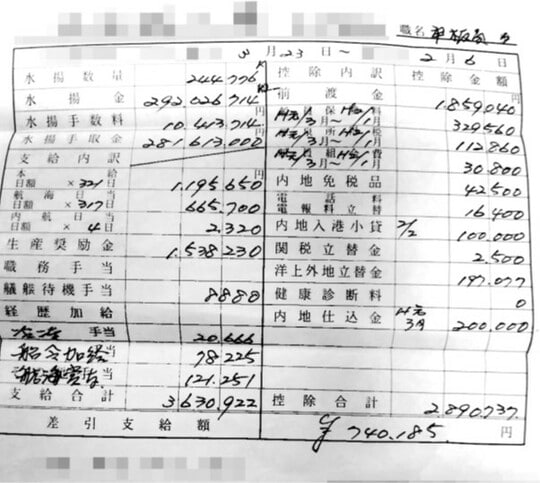 職名 甲板員
3月23日～2月6日
水揚数量 244.776 K
水揚金 292.026.714 円
水揚手数料 10.413.714 円
水揚手取金 281.613.000 円
支給内訳
本給
日額×321日 1.195.650 円
航海日当
日額×317日 665.700
内航日当
日額×4日 2.320
生産奨励金 1.538.230
職務手当
艤艤待機手当 8.880
経歴加給
手当 20.666
船令加給 78.225
121.251
支給合計 3.630.922
控除内訳 控除金額
前渡金 1.859.040 円
保 料
3月～1月 329.560
所 税
3月～1月 112.860
組 費
3月～1月 30.800
内地免税品 42.500
電話料
電報料立替 16.400
内地入港小貸 2/2 100.000
関税立替金 2.500
洋上外地立替金 197.077
健康診断料 0
内地仕込金 H元 3月 200.000
控除合計 2.890.737
差引支給額 ¥740.185. 円